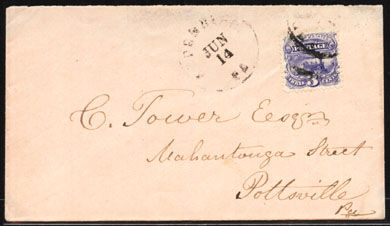 JUN
14
POSTAGE
3
C. Tower Esqr
Mahantonga Street
Pottsville
Pa